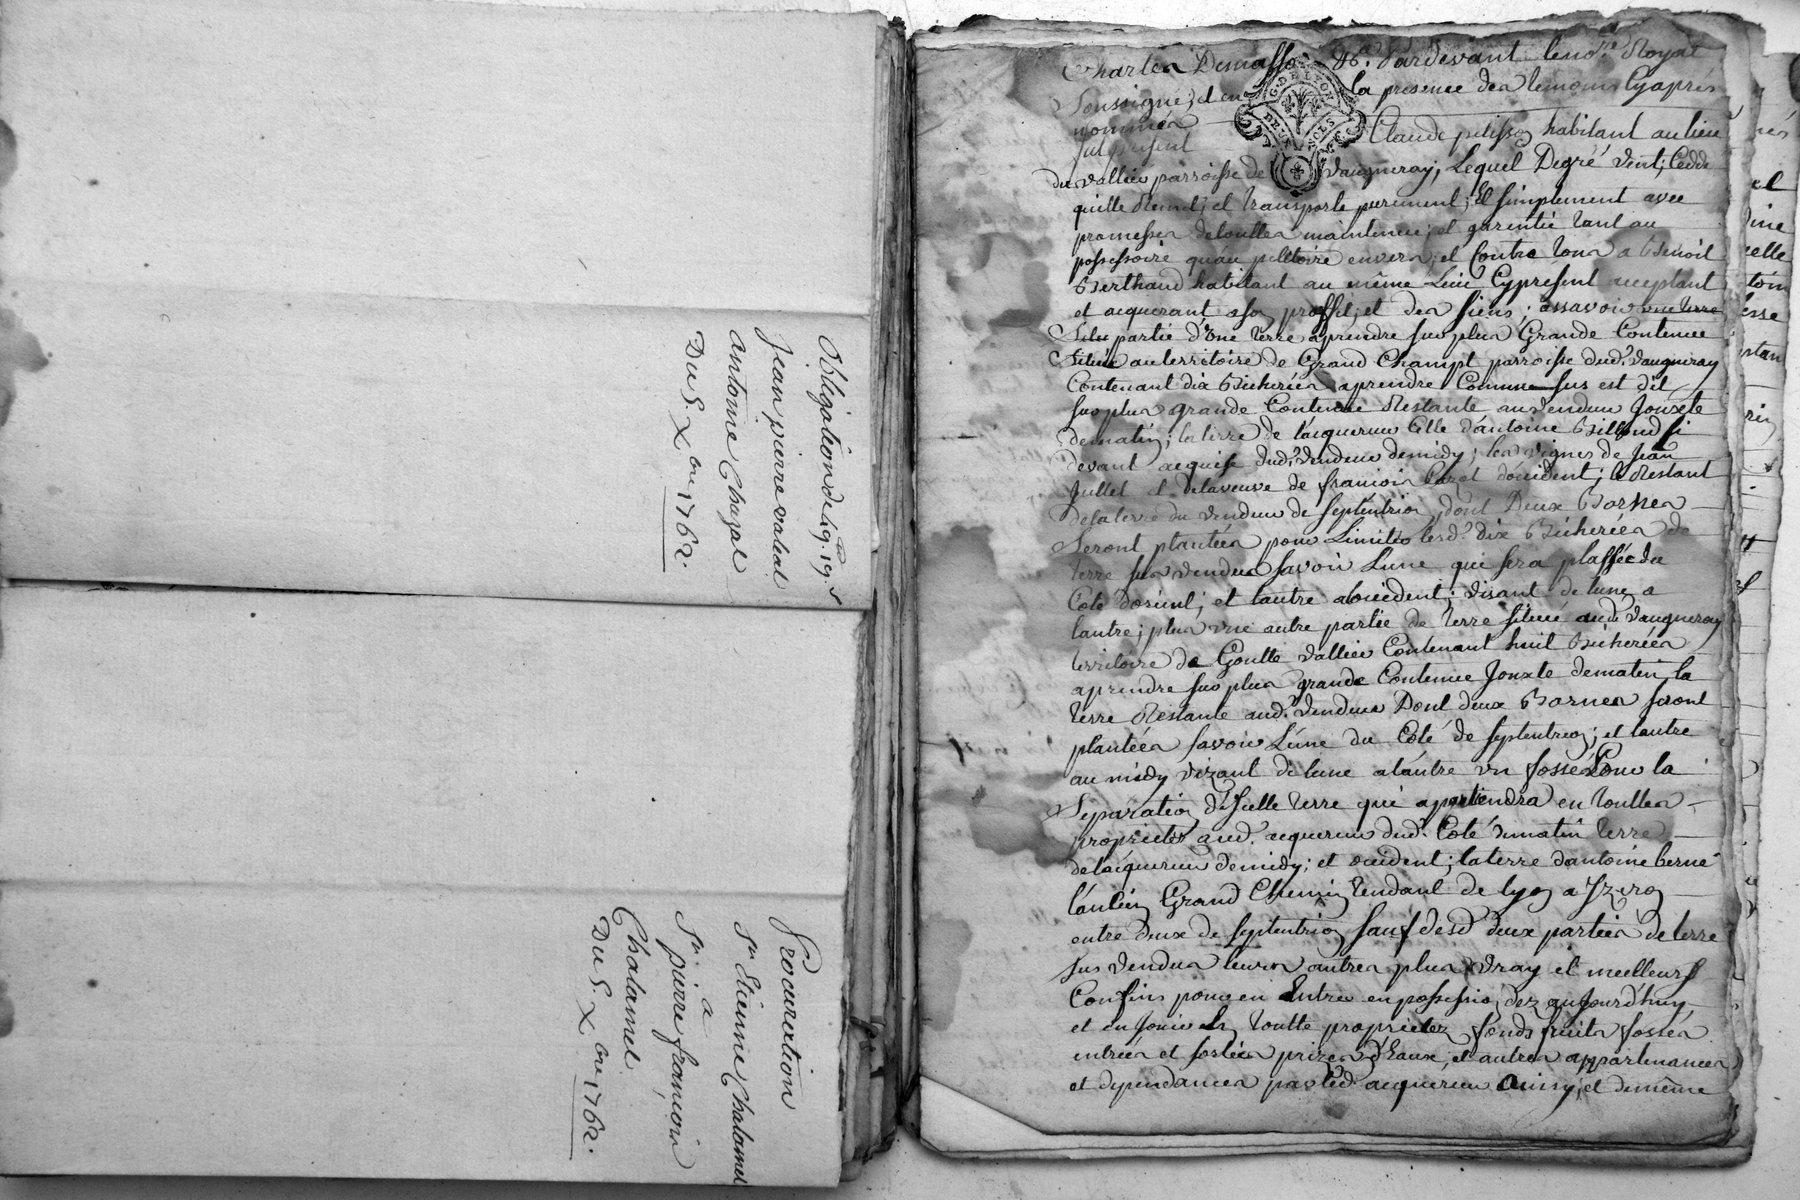 Obligâtion de 49.ᵗᵗ 19.ˢ
Jean pierre
antoine Chazal
Du 5 Xbre 1762.
Procuration
Sr Etienne Chalamel
a
Sr. pierre françois
Chalamel
Du 5 Xbre 1762.
Pardevant le nore Royal
Soussigné, et en la presence des temoins Cy aprés
nommés
G. DE LYON
Claude habitant au lieu
du vallier parroisse de vaugneray, Lequel De gré vent, Cedde
quitte Remet, et transporte purement, Et simplement avec
promesses de touttes maintenue, et garentie tant au
possessoire quau pettoire envers, et Contre tous a Benoit
Berthaud habitant au même Lieu Cy présent acceptant
et acquerant a son proffit, et des siens, assavoir
partie d'une terre aprendre sus plus Grande Contenue
Situee au territoire de Grand Champt parroisse dud. vaugneray
Contenant dix Bicherées aprendre Comme sus est dit
sus plus grande Contenue Restante au vendeur Jouxte
de matin, la terre de l'acquereur Celle d'antoine
devant acquise dud. vendeur de midy, les vignes de Jean
Jullet et de la veuve de françois d'occident, le Restant
de la terre du vendeur de septentrion, dont Deux Bornes
Seront plantées pour Limites lesd. dix Bicherées de
terre sus vendues savoir Lune qui sera plassée du
Coté dorient, et lautre a loccident, visant de lune a
lautre, plus une autre partie de terre situee aud. vaugneray
territoire de Goutte vallier Contenant huit Bicherées
aprendre sus plus grande Contenue Jouxte de matin la
terre Restante aud. vendeur Dont deux Bornes seront
plantées savoir Lune du Coté de septentrion, et lautre
au midy vizant de lune a lautre un fossé Pour la
Separation d'icelle terre qui apartiendra en touttes
proprietés aud. acquereur dud. Coté de matin terre
de lacquereur de midy, et occident, la terre dantoine
lantien Grand Chemin tendant de lyon a Yzeron
entre deux de septentrion sauf desd deux parties de terre
sus vendues leurs autres plus vray et meilleurs
Confins pour en Entrer en possession, dez aujourd'huy
et en Jouir En toutte proprietez fonds fruits fossés
entrées et sorties prizes d'Eaux, et autres appartenances
et dependances par led. acquereur ainsy, et de même